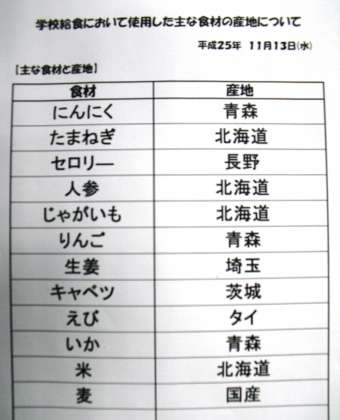 学校給食において使用した主な食材の産地について
平成25年 11月13日(水)
【主な食材と産地】
食材 産地
にんにく 青森
たまねぎ 北海道
セロリー 長野
人参 北海道
じゃがいも 北海道
りんご 青森
生姜 埼玉
キャベツ 茨城
えび タイ
いか 青森
米 北海道
麦 国産